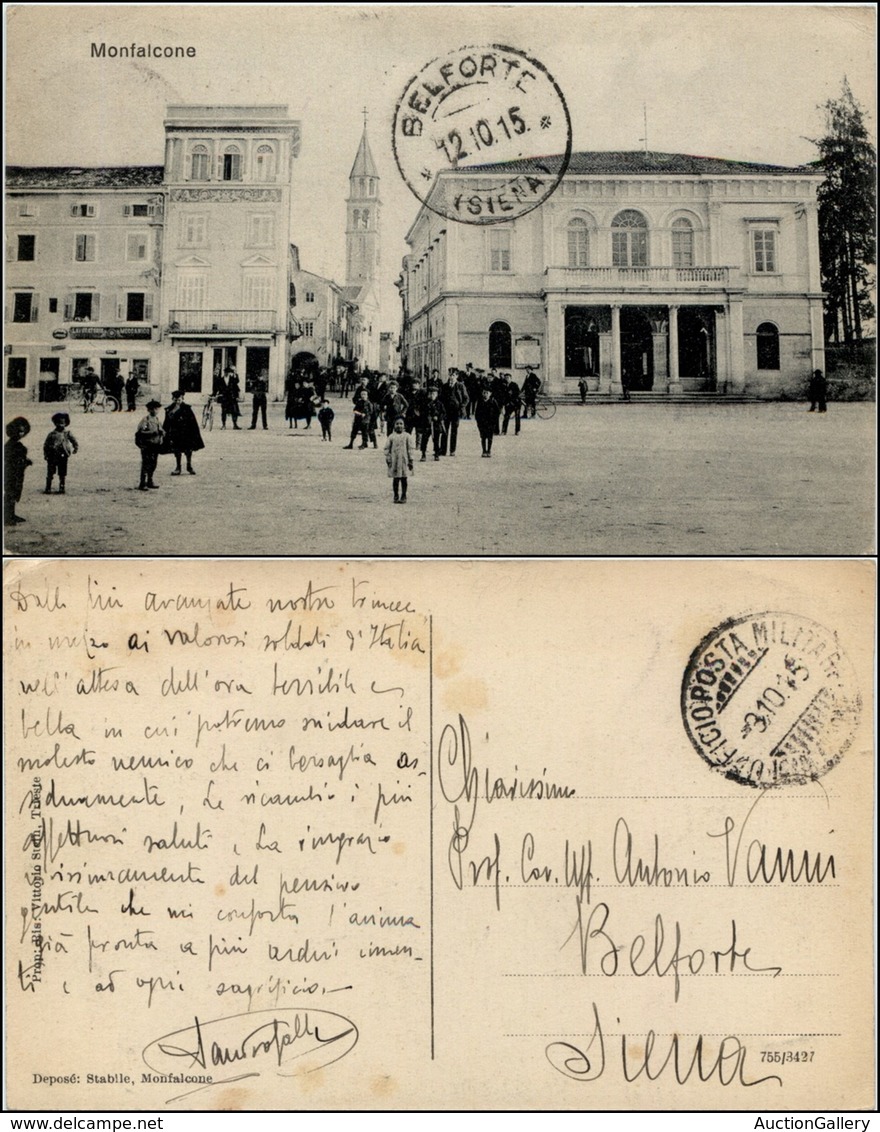 Monfalcone
BELFORTE
12.10.15
(SIENA)
Dalle più avanzate nostre trincee
in mezzo ai valorosi soldati d'Italia
nell'attesa dell'ora terribile e
bella in cui potremo snidare il
molesto nemico che ci bersaglia as-
siduamente, Le ricambio i più
affettuosi saluti e La ringrazio
vivissimamente del pensiero
gentile che mi conforta l'anima
già pronta a più ardui cimen-
ti e ad ogni sacrificio.
Prop: Ris: Vittorio Stein, Trieste
Deposé: Stabile, Monfalcone
UFFICIO POSTA MILITARE
9.10.15
Chiarissimo
Prof. Cav. Uff. Antonio Vanni
Belforte
Siena
755/3427
AuctionGallery